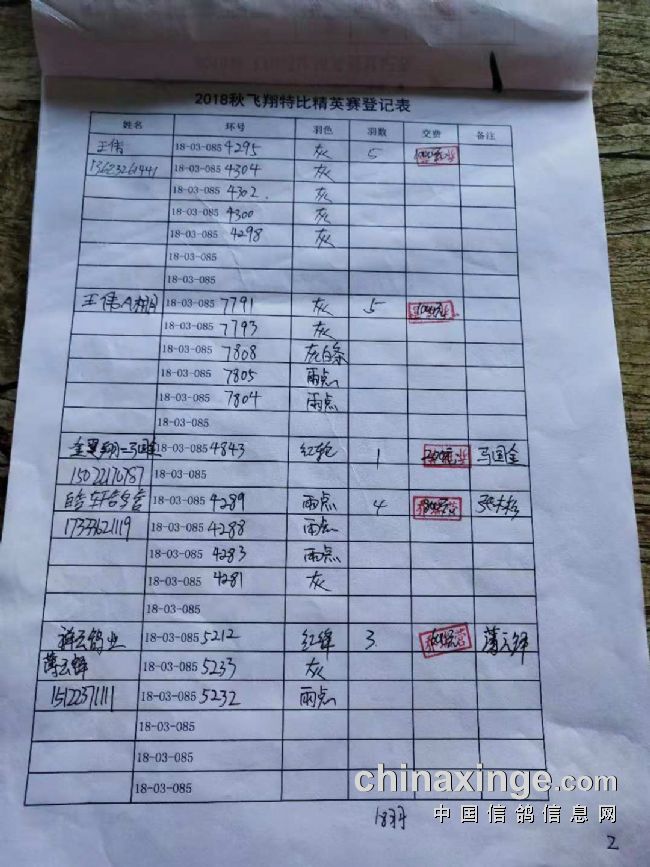 2018秋飞翔特比精英赛登记表
姓名 环号 羽色 羽数 交费 备注
王伟 18-03-085 4295 灰 5
13623261441 18-03-085 4304 灰
18-03-085 4302 灰
18-03-085 4300 灰
18-03-085 4298 灰
18-03-085
王伟 18-03-085 7791 灰 5
18-03-085 7793 灰
18-03-085 7808 灰白条
18-03-085 7805 雨点
18-03-085 7804 雨点
18-03-085
18-03-085 4843 红轮 1 马国金
15022170787 18-03-085
18-03-085 4289 雨点 4
17333621119 18-03-085 4288 雨点
18-03-085 4283 雨点
18-03-085 4281 灰
18-03-085
祥云鸽业 18-03-085 5212 红绛 3 薄云锋
薄云锋 18-03-085 5233 灰
15122371111 18-03-085 5232 雨点
18-03-085
18-03-085
18-03-085
chinaxinge.com
中国信鸽信息网
18羽
2